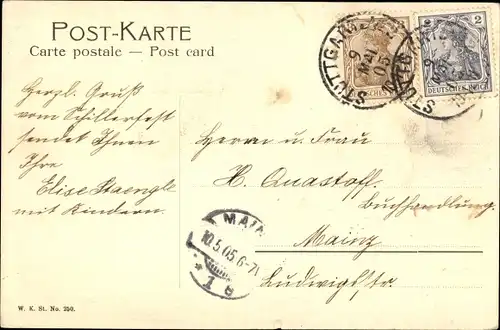 POST-KARTE
Carte postale — Post card
STUTTGART
9 MAI 05
2
DEUTSCHES REICH
Herzl. Gruß
vom Schillerfest
sendet Ihnen
Ihre
Elise Staengle
mit Kindern.
Herrn u. Frau
H. Quastoff.
Buchhandlung.
Mainz
Ludwigstr.
MAINZ
10.5.05.6-7
W. K. St. No. 250.